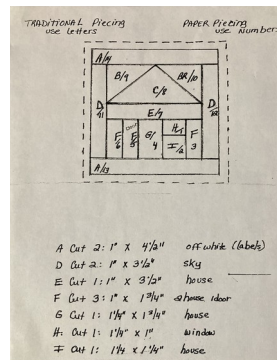 TRADITIONAL Piecing
use letters
PAPER Piecing
use Numbers
A/14
B/9
BR/10
C/8
D/11
D/12
E/7
F/6
F/5
G/4
H/1
I/2
F
3
A/13
A Cut 2: 1" X 4 1/2" off white (labels)
D Cut 2: 1" X 3 1/2" sky
E Cut 1: 1" X 3 1/2" house
F Cut 3: 1" X 1 3/4" 2 house 1 door
G Cut 1: 1 1/4" X 1 3/4" house
H. Cut 1: 1 1/4" X 1" window
I Cut 1: 1 1/4 X 1 1/4" house